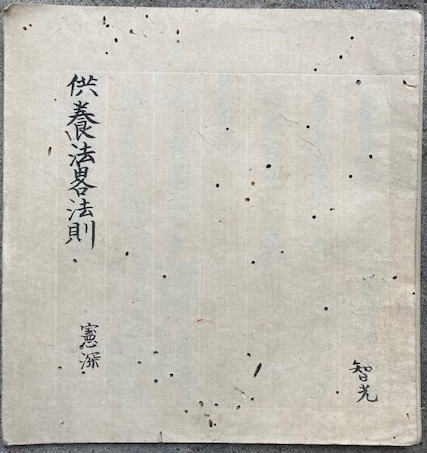 供養法畧法則
憲深
智光